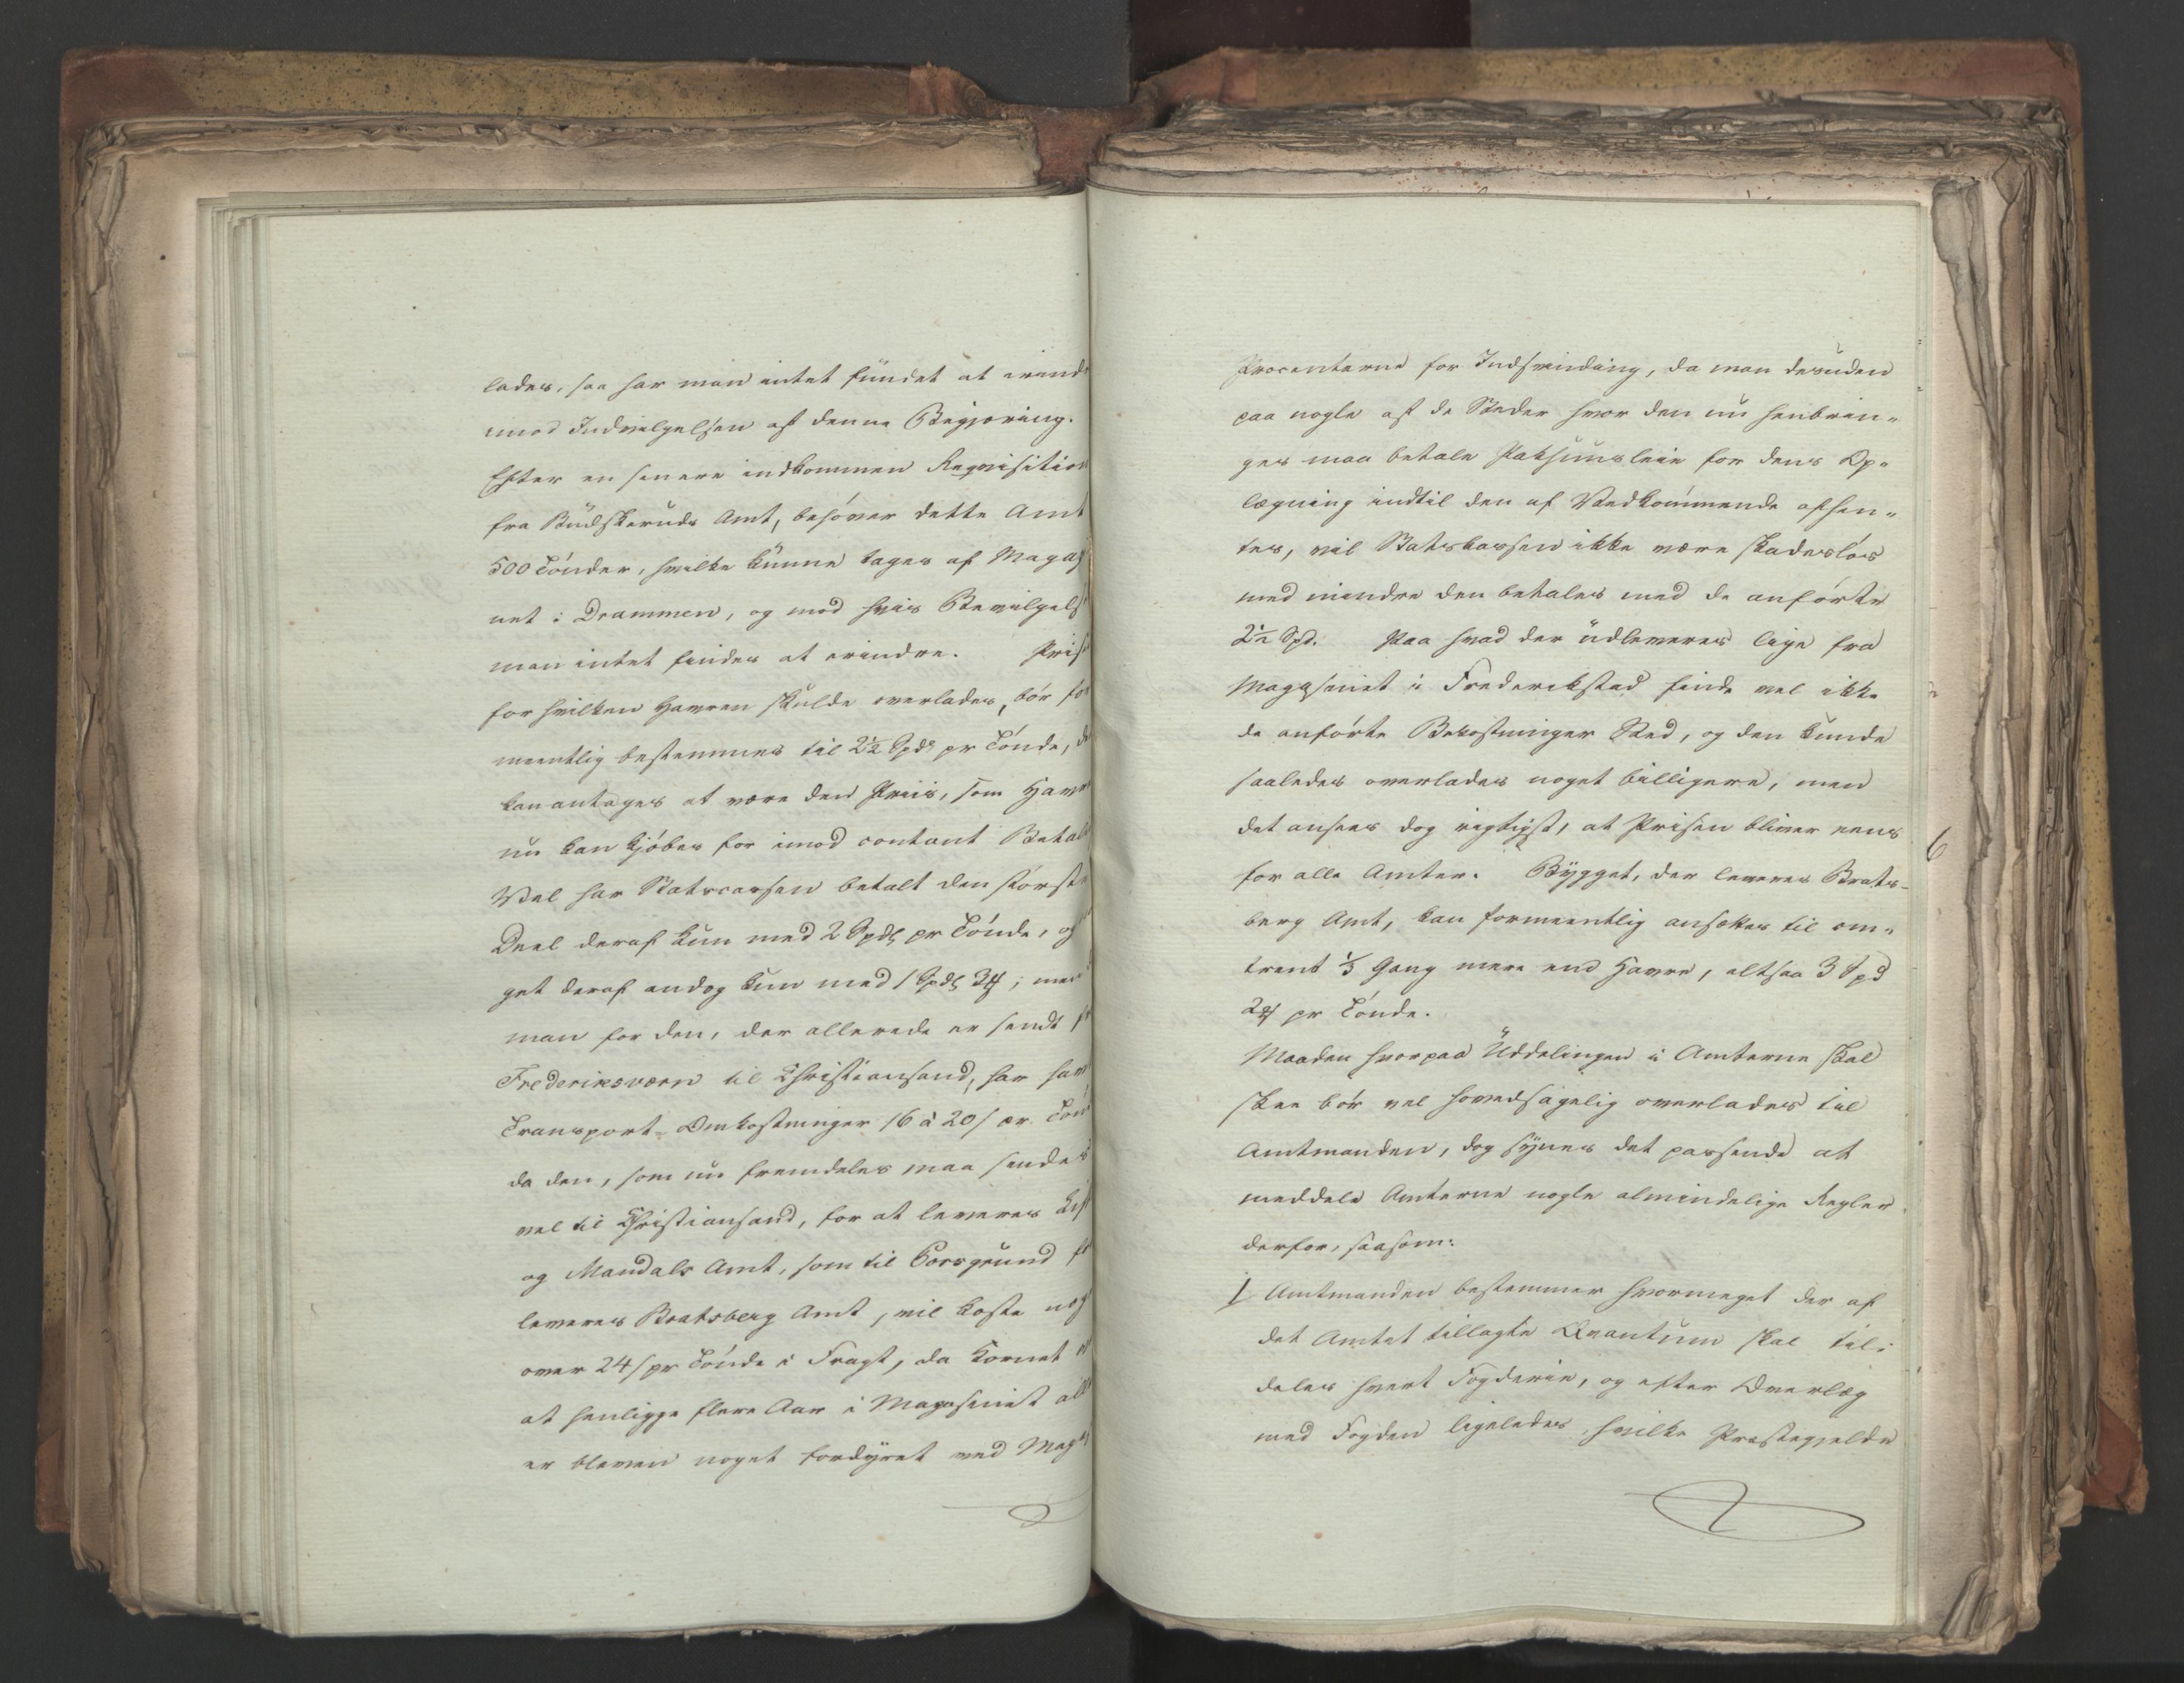 lades, saa har man intet fundet at erind
imod Indvilgelsen af denne Begjæring.
Efter en senere indkommen Reqvisition
fra Budskeruds Amt, behøver dette Amt
500 Tønder, hvilke kunne tages af Magaz
net i Drammen, og mod hvis Bevilgels
man intet finder at erindre. Pris
for hvilken Havren skulde overlades, bør for
meentlig bestemmes til 2½ Spdr pr Tønde, d
kan antages at være den Priis, som Havr
nu kan kjøbes for imod contant Betal
Vel har Statscassen betalt den største
Deel deraf kun med 2 Spd pr Tønde, og
get deraf endog kun med 1 Spd 3 ; men
man for den, der allerede er sendt fr
Frederiksværn til Christiansand, har hav
Transport-Omkostninger 16 à 20 s pr Tøn
da den, som nu fremdeles maa sendes
vel til Christiansand, for at leveres List
og Mandals Amt, som til Porsgrund for
leveres Bratsberg Amt, vil koste nog
over 24 s pr Tønde i Fragt, da Kornet
at henligge flere Aar i Magasinet all
er bleven noget fordyret ved Mag
Procenterne for Indsvinding, da man desuden
paa nogle af de Steder hvor den nu henbrin„
ges maa betale Pakhuusleie for dens Op„
lægning indtil den af Vedkommende afhen„
tes, vil Statskassen ikke være skadesløs
med mindre den betales med de anførte
2½ Spd. Paa hvad der udleveres lige fra
Magasinet i Frederikstad finde vel ikke
de anførte Bekostninger Sted, og den kunde
saaledes overlades noget billigere, men
det ansees dog rigtigst, at Prisen bliver eens
for alle Amter. Bygget, der leveres Brats-
berg Amt, kan formeentlig ansættes til om„
trent ⅓ Gang mere end Havre, altsaa 3 Spd
2 pr Tønde.
Maaden hvorpaa Uddelingen i Amterne skal
skee bør vel hovedsagelig overlades til
Amtmanden, dog synes det passende at
meddele Amterne nogle almindelige Regler
derfor, saasom:
1 Amtmanden bestemmer hvormeget der af
det Amtet tillagte Quantum skal til„
deles hvert Fogderie, og efter Overlæg
med Fogden ligeledes, hvilke Præstegjelde